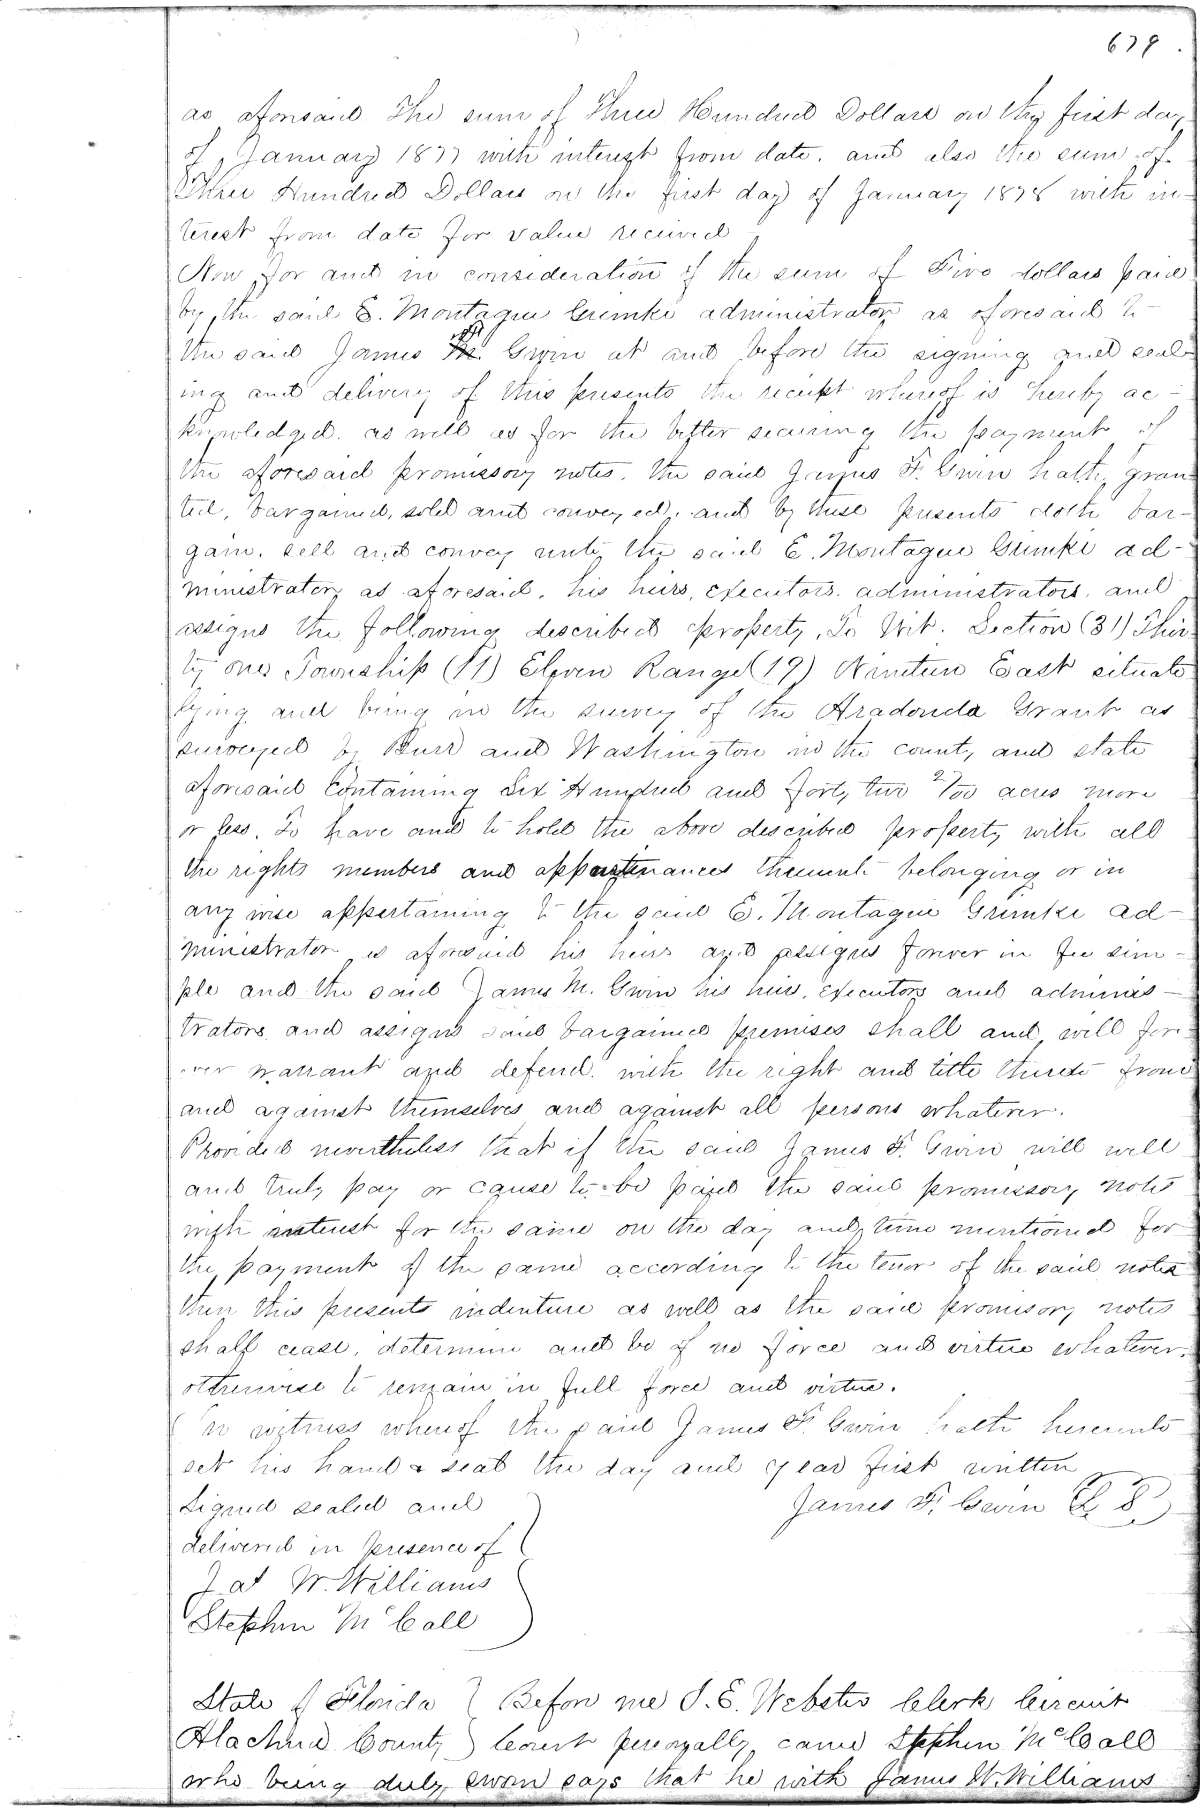 679.
as aforesaid The sum of Three Hundred Dollars on the first day
of January 1877 with interest from date. and also the sum of
Three Hundred Dollars on the first day of January 1878 with in-
terest from date for value received
Now for and in consideration of the sum of Five dollars paid
by the said E. Montague Grimke administrator as aforesaid to
the said James Gwin at and before the signing and seal-
ing and delivery of this presents the receipt whereof is hereby ac-
knowledged. as well as for the better securing the payment of
the aforesaid promissory notes. the said James F. Gwin hath gran-
ted, bargained, sold and conveyed, and by these presents doth bar-
gain. sell and convey unto the said E. Montague Grimke ad-
ministrator as aforesaid, his heirs, executors. administrators. and
assigns the following described property, To Wit. Section (31) Thir-
ty one Township (11) Eleven Range (19) Nineteen East situate
lying and being in the survey of the Aradonda Grant as
surveyed by Burr and Washington in the county and state
aforesaid Containing Six Hundred and forty two 2/100 acres more
or less. To have and to hold the above described property with all
the rights members and appurtenances thereunto belonging or in
any wise appertaining to the said E. Montague Grimke ad-
ministrator as aforesaid his heirs and assigns forever in fee sim-
ple and the said James M. Gwin his heirs, executors and adminis-
trators and assigns said bargained premises shall and will for-
ever warrant and defend. with the right and title thereto from
and against themselves and against all persons whatever.
Provided nevertheless that if the said James F. Gwin will well
and truly pay or cause to be paid the said promissory notes
with interest for the same on the day and time mentioned for
the payment of the same according to the tenor of the said notes
then this presents indenture as well as the said promisory notes
shall cease, determine and be of no force and virtue whatever.
otherwise to remain in full force and virtue.
In witness whereof the said James F. Gwin hath hereunto
set his hand & seal the day and year first written
Signed sealed and James F. Gwin L. S.
delivered in presence of
Jas W. Williams
Stephen McCall
State of Florida } Before me J. E. Webster Clerk Circuit
Alachua County } Court personally came Stephen McCall
who being duly sworn says that he with James W. Williams